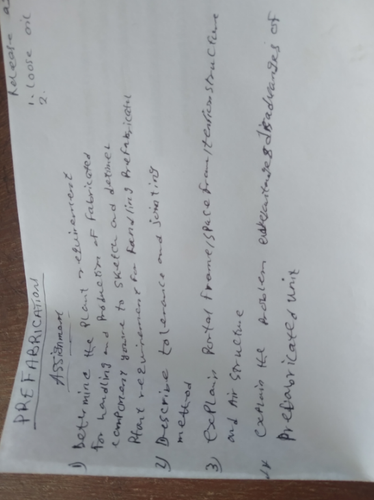 PREFABRICATION
Assignment
1) Determine the Plant requirement
for handling and Production of Fabricated
component you're to sketch and determ
Plant requirement for handling Prefabricated
2) Describe tolerance and jointing
method
3) Explain Portal Frame/space Frame/tension structure
and Air Structure
Explain the Problem advantages disadvantages of
Prefabricated Unit
Release a
1. Loose oil
2.